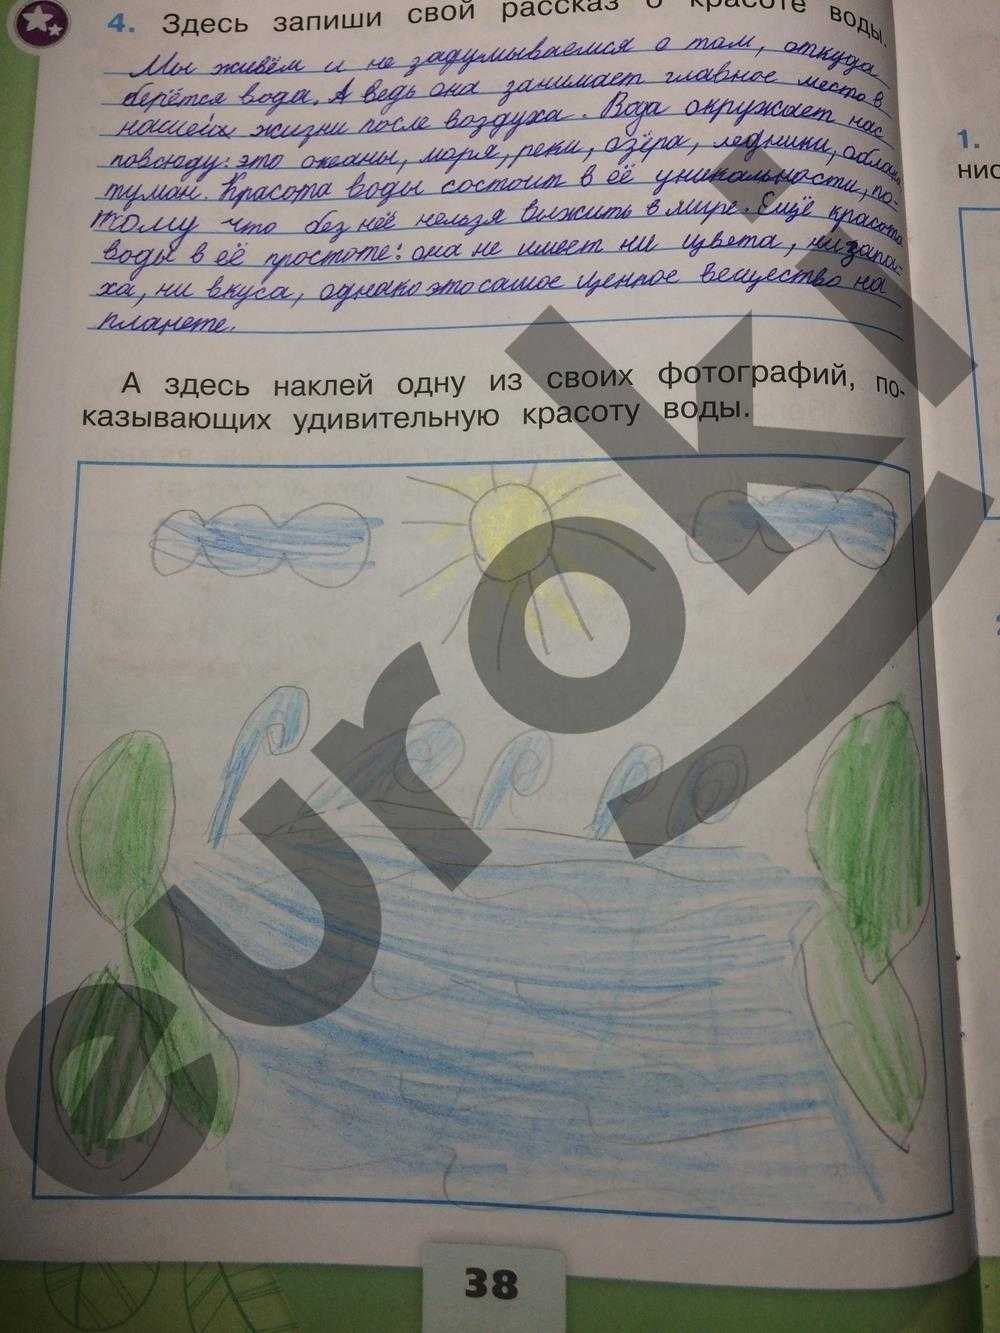 4. Здесь запиши свой рассказ о красоте воды.
Мы живём и не задумываемся о том, откуда
берётся вода. А ведь она занимает главное место в
нашей жизни после воздуха. Вода окружает нас
повсюду: это океаны, моря, реки, озёра, ледники, облака
туман. Красота воды состоит в её уникальности, по-
тому что без неё нельзя выжить в мире. Ещё красота
воды в её простоте: она не имеет ни цвета, ни запа-
ха, ни вкуса, однако это самое ценное вещество на
планете.
А здесь наклей одну из своих фотографий, по-
казывающих удивительную красоту воды.
38
1.
нис
euroki